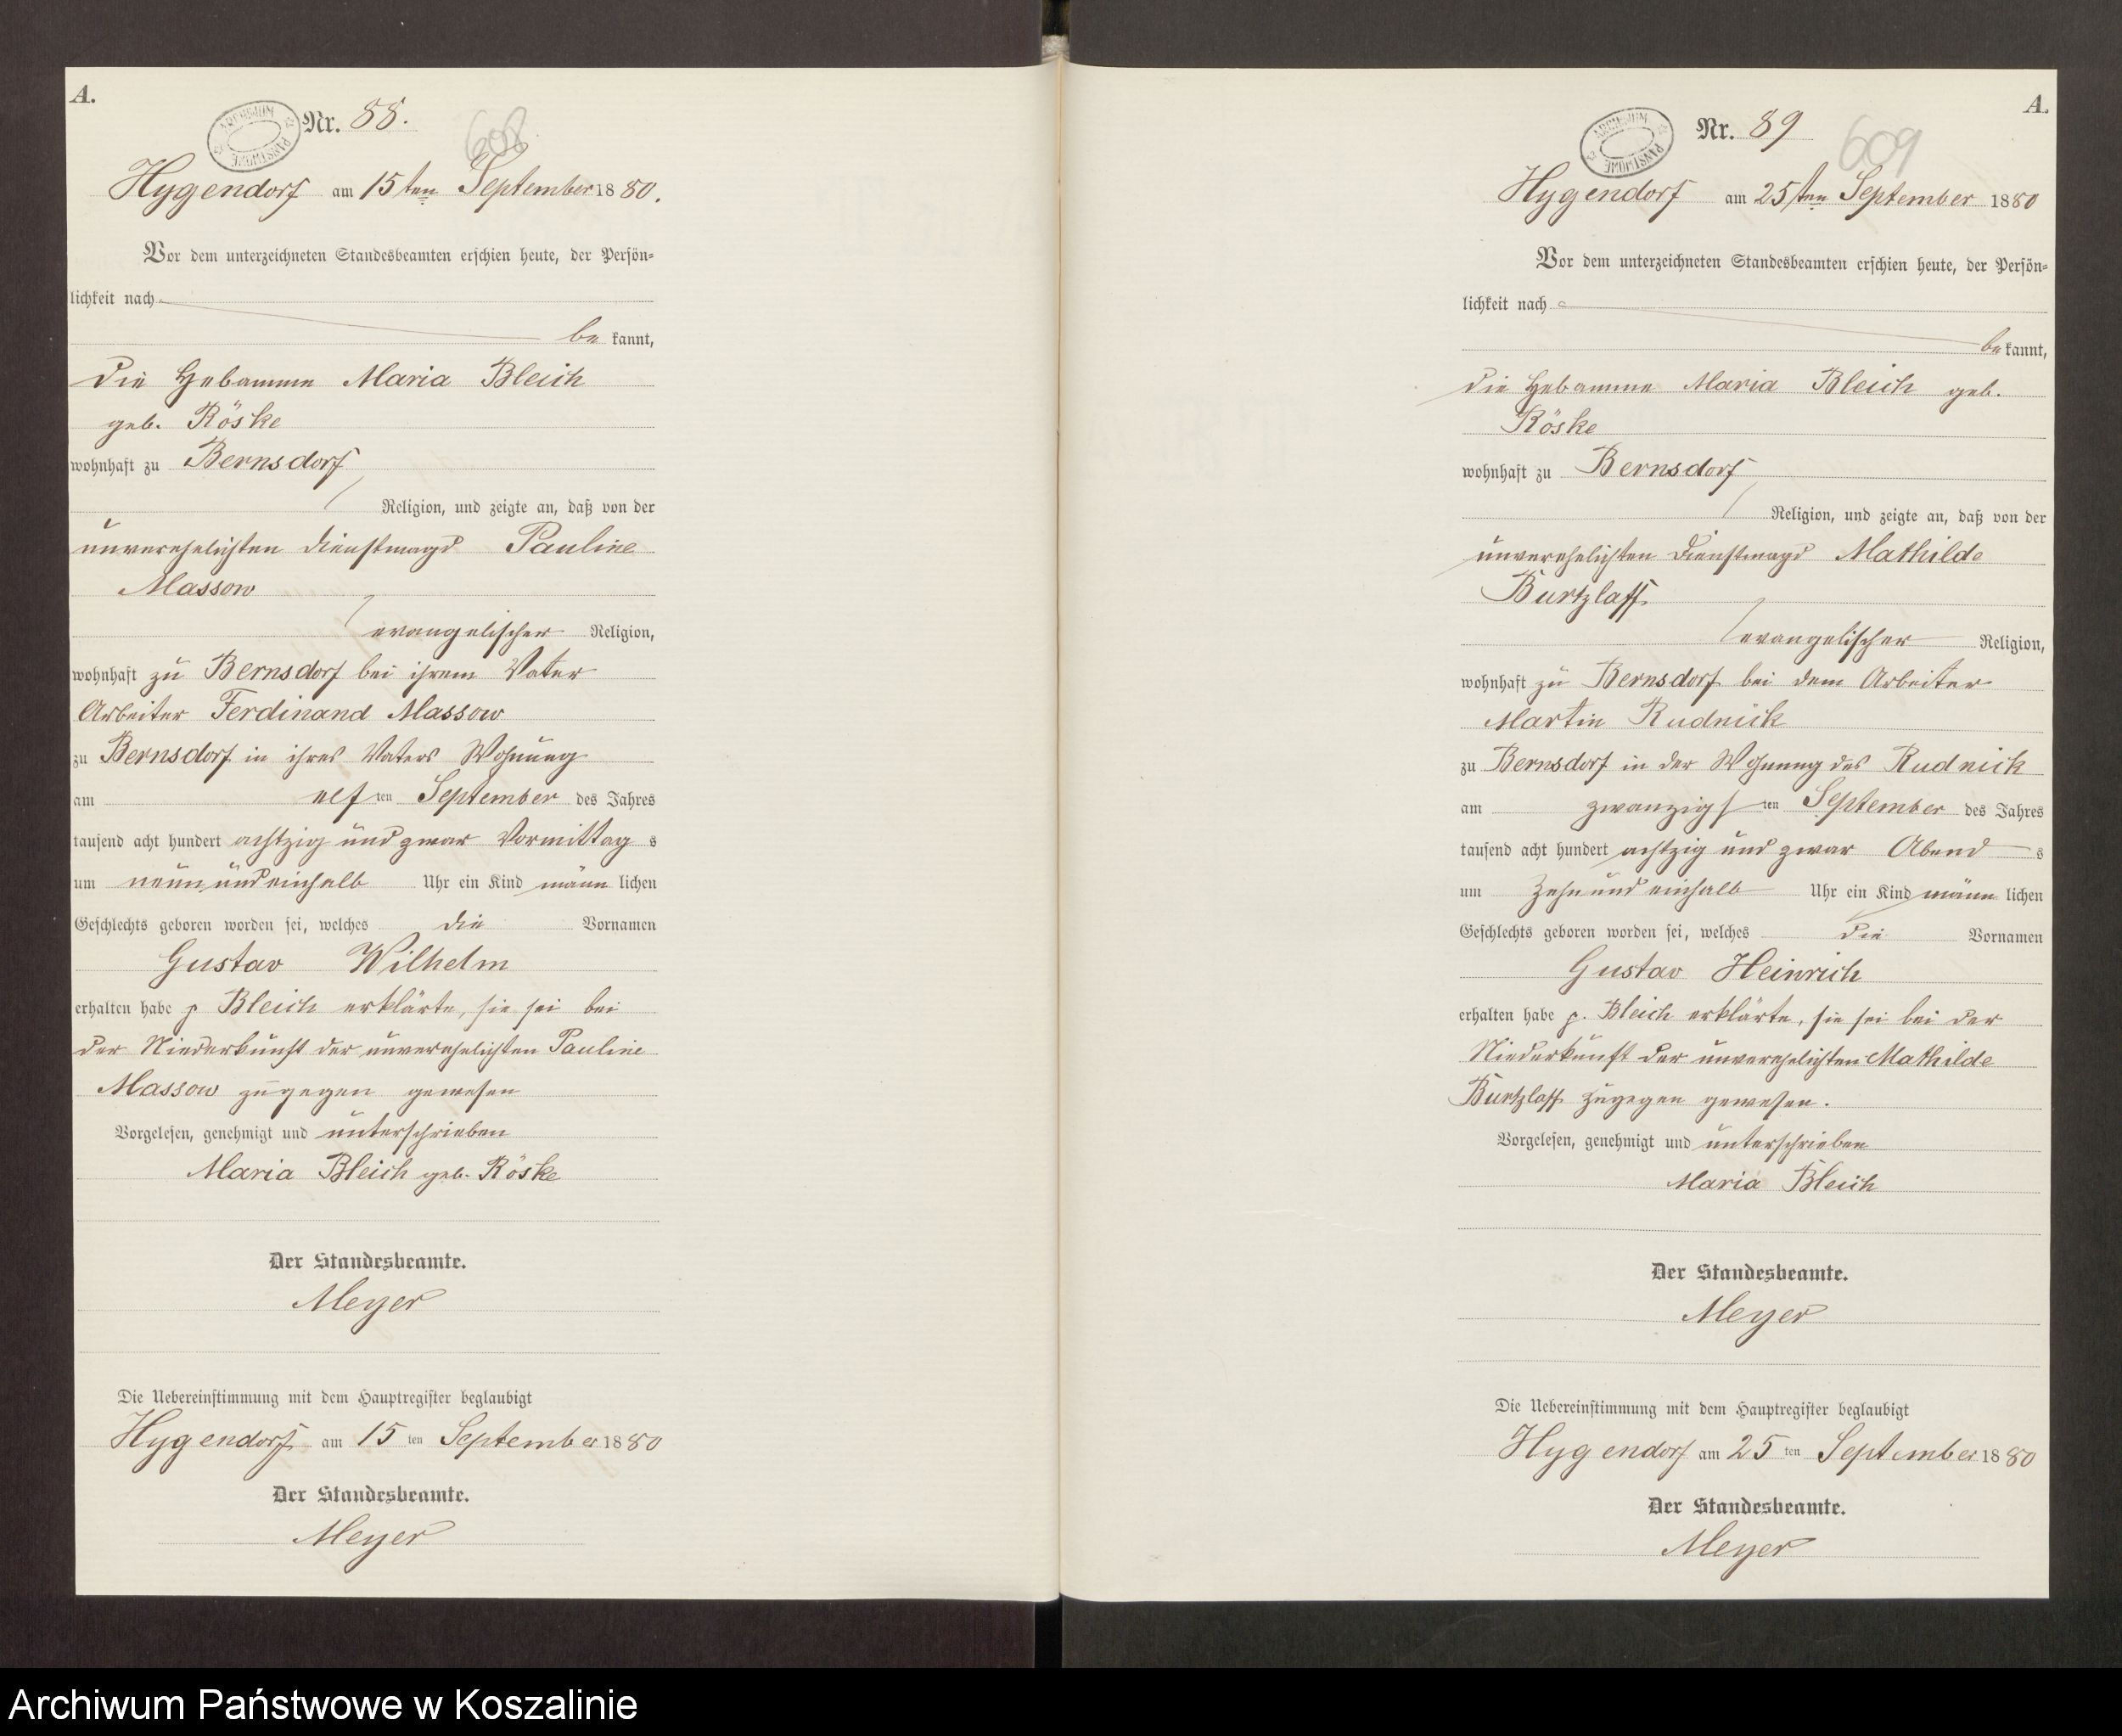 A.
Nr. 88.
608
ARCHIWUM PAŃSTWOWE
Hygendorf am 15ten September 1880.
Vor dem unterzeichneten Standesbeamten erschien heute, der Persön-
lichkeit nach
be kannt,
die Hebamme Maria Bleich
geb. Röske
wohnhaft zu Bernsdorf
Religion, und zeigte an, daß von der
unverehelichten Dienstmagd Pauline
Massow
evangelischer Religion,
wohnhaft zu Bernsdorf bei ihrem Vater
Arbeiter Ferdinand Massow
zu Bernsdorf in ihres Vaters Wohnung
am elf ten September des Jahres
tausend acht hundert achtzig und zwar Vormittag s
um neun und einhalb Uhr ein Kind männ lichen
Geschlechts geboren worden sei, welches die Vornamen
Gustav Wilhelm
erhalten habe p Bleich erklärte, sie sei bei
der Niederkunft der unverehelichten Pauline
Massow zugegen gewesen
Vorgelesen, genehmigt und unterschrieben
Maria Bleich geb. Röske
Der Standesbeamte.
Meyer
Die Uebereinstimmung mit dem Hauptregister beglaubigt
Hygendorf am 15 ten September 1880
Der Standesbeamte.
Meyer
A.
Nr. 89
609
ARCHIWUM PAŃSTWOWE
Hygendorf am 25ten September 1880
Vor dem unterzeichneten Standesbeamten erschien heute, der Persön-
lichkeit nach
be kannt,
die Hebamme Maria Bleich geb.
Röske
wohnhaft zu Bernsdorf
Religion, und zeigte an, daß von der
unverehelichten Dienstmagd Mathilde
Burtzlaff
evangelischer Religion,
wohnhaft zu Bernsdorf bei dem Arbeiter
Martin Rudnick
zu Bernsdorf in der Wohnung des Rudnick
am zwanzigs ten September des Jahres
tausend acht hundert achtzig und zwar Abend s
um Zehn und einhalb Uhr ein Kind männ lichen
Geschlechts geboren worden sei, welches die Vornamen
Gustav Heinrich
erhalten habe p. Bleich erklärte, sie sei bei der
Niederkunft der unverehelichten Mathilde
Burtzlaff zugegen gewesen.
Vorgelesen, genehmigt und unterschrieben
Maria Bleich
Der Standesbeamte.
Meyer
Die Uebereinstimmung mit dem Hauptregister beglaubigt
Hygendorf am 25 ten September 1880
Der Standesbeamte.
Meyer
Archiwum Państwowe w Koszalinie